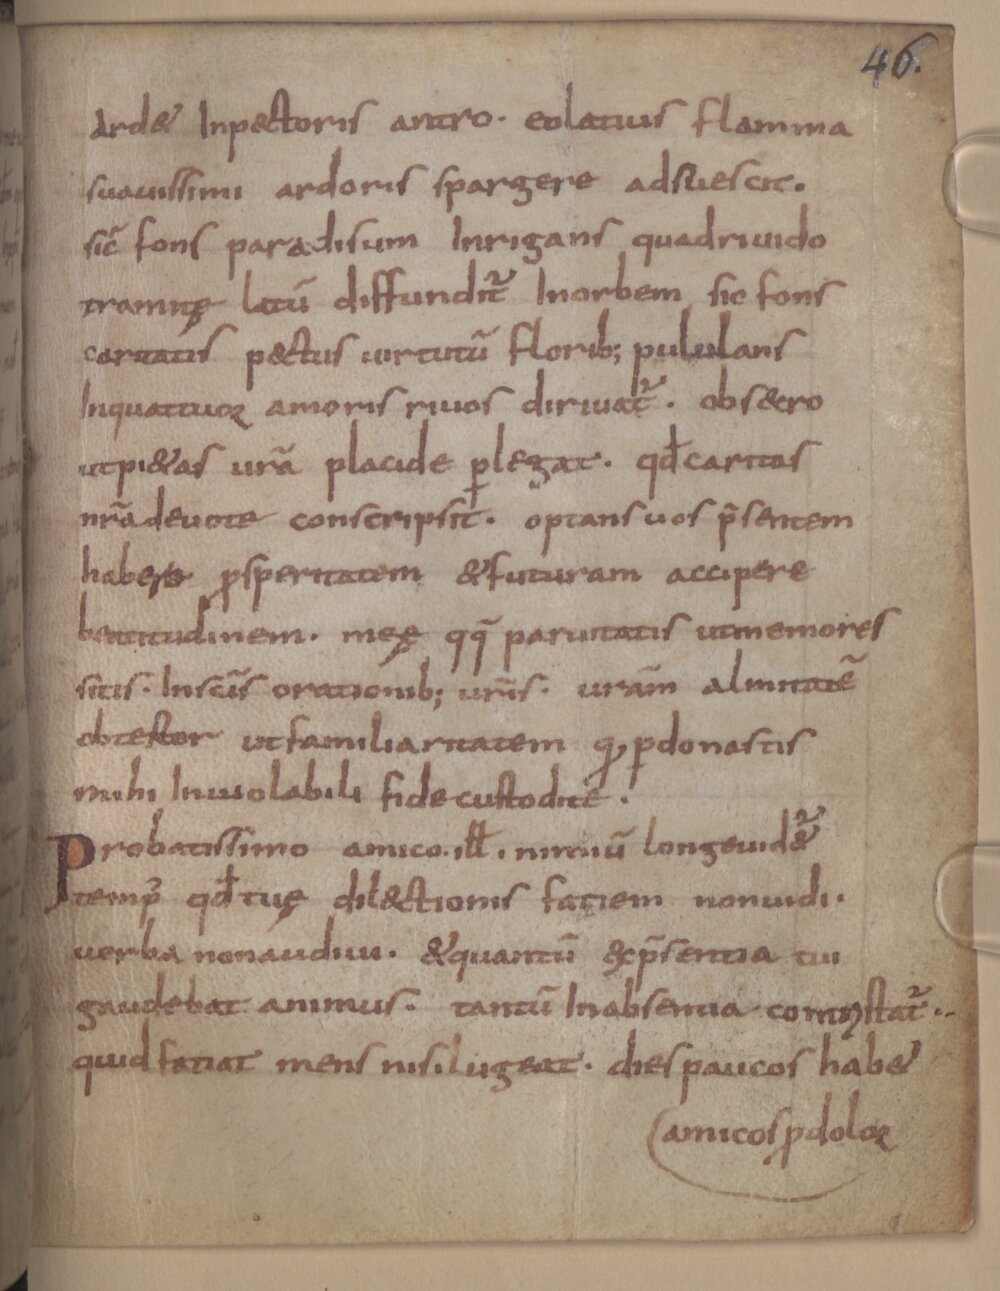 46.
ard& Inpectoris antro. eolatius flamma
suauissimi ardoris spargere adsuescit.
sic̄ fons paradisum Inrigans quadriuido
tramitę latū diffundit̄ Inorbem sic fons
caritatis pectus uirtutū florib; pululans
Inquattuor amoris riuos diriuat̄. obs&ro
utpi&as ur̄a placide ꝑlegat. qd̄ caritas
nr̄a deuote conscripsit. optans uos p̄sentem
habere ꝓsperitatem &futuram accipere
beatitudinem. meę qq̄ paruitatis utmemores
sitis. Insc̄is orationib; ur̄is. urām almitatē
obtestor utfamiliaritatem q, ꝑdonastis
mihi Inuiolabili fide custodite.
Probatissimo amico. ill̄. nimiū longeuid&̄
temp̄ qd̄ tuę dilectionis faciem nonuidi.
uerba nonaudiui. &quantū exp̄sentia tui
gaudebat animus. tantū Inabsentia contristat̄.
quid faciat mens nisi lugeat. dies paucos hab&
amicos ꝓdolor